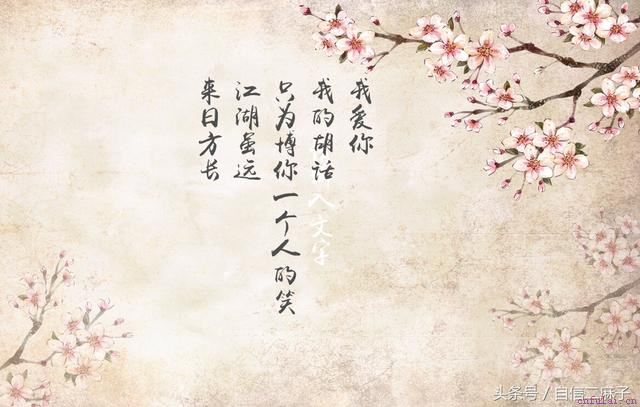 我爱你
我的胡话
只为博你一个人的笑
江湖虽远
来日方长
入文字
头条号／自信二麻子
cnfulai.cn